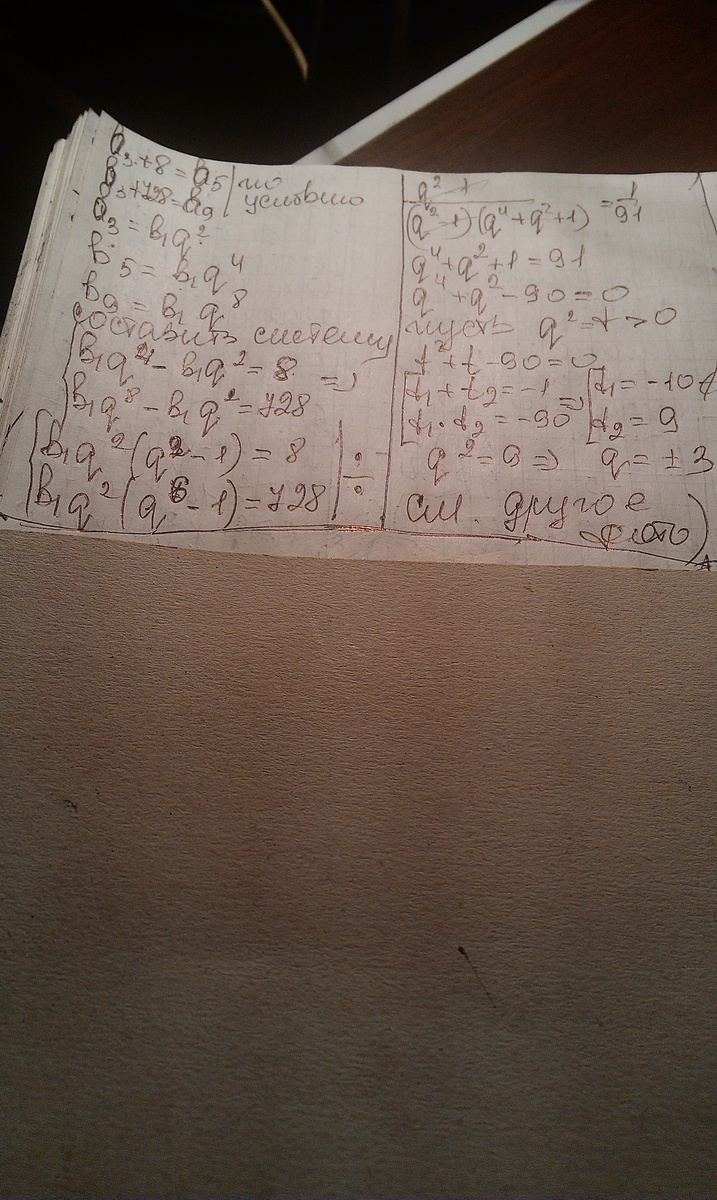 b₃+8=b₅ | по
b₃+728=b₉ | условию
b₃=b₁q²
b₅=b₁q⁴
b₉=b₁q⁸
составить систему
b₁q⁴-b₁q²=8 =>
b₁q⁸-b₁q²=728
b₁q²(q²-1)=8
b₁q²(q⁶-1)=728 | :
q²-1
(q²-1)(q⁴+q²+1) = 1/91
q⁴+q²+1=91
q⁴+q²-90=0
пусть q²=t>0
t²+t-90=0
t₁+t₂=-1 => t₁=-10∉
t₁·t₂=-90 t₂=9
q²=9 => q=±3
см. другое
фото)